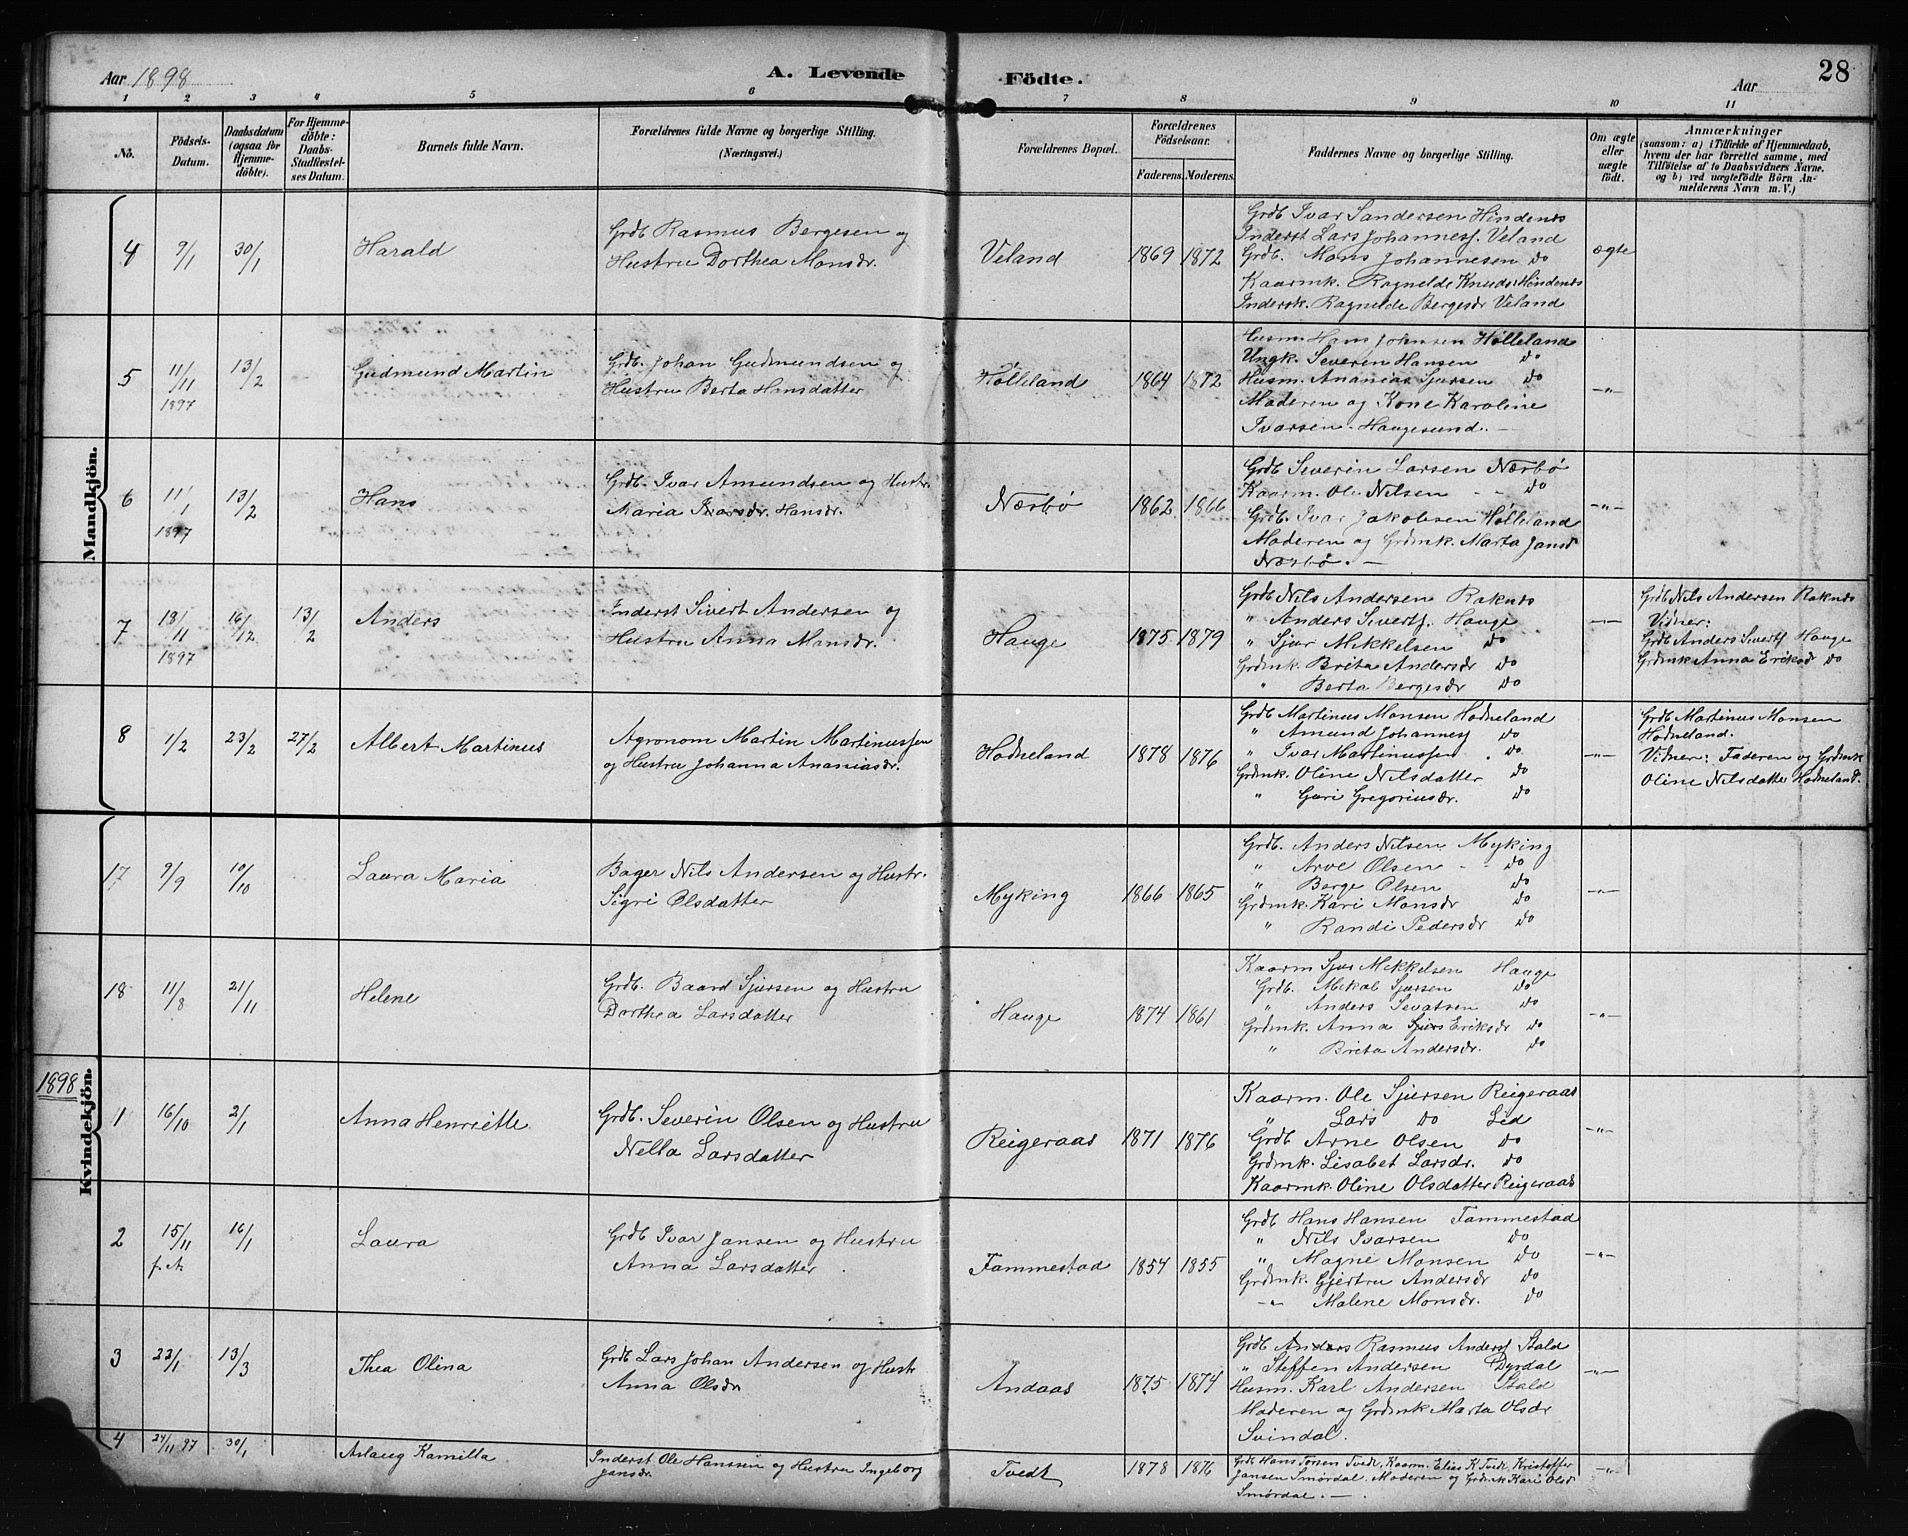 Aar 1898
A. Levende Födte.
Aar
28
1 2 3 4 5 6 7 8 9 10 11
No.
Födsels-
Datum.
Daabsdatum
(ogsaa for
Hjemme-
döbte).
For Hjemme-
döbte:
Daabs-
Stadfæstel-
ses Datum.
Barnets fulde Navn.
Forældrenes fulde Navne og borgerlige Stilling.
(Næringsvei.)
Forældrenes Bopæl.
Forældrenes
Födselsaar.
Faderens. Moderens.
Faddernes Navne og borgerlige Stilling.
Om ægte
eller
uægte
födt.
Anmærkninger
(saasom: a) i Tilfælde af Hjemmedaab,
hvem der har forrettet samme, med
Tilföielse af to Daabsvidners Navne.
og b) ved uægtefödte Börn An-
melderens Navn m. V.)
Mandkjön.
4 9/1 30/1 Harald
Grdb Rasmus Bergesen og
Hustru Dorthea Monsdr.
Veland 1869 1872
Grdb Ivar Sandersen Hindenes
Inderst Lars Johanness. Veland
Grdb. Mons Johannesen do
Kaarmk. Ragnelde Knudsdr Hindenes
Indersk. Ragnelde Bergesdr Veland
ægte
5 11/11 1897 13/2 Gudmund Martin
Grdb. Johan Gudmundsen og
Hustru Berta Hansdatter
Hølleland 1864 1872
Husm. Hans Johnsen Hølleland
Ungk. Severin Hansen do
Husm. Ananias Sjursen do
Moderen og Kone Karoline
Ivarsen. Haugesund. —
—"—
6 11/1 1897 13/2 Hans
Grdb. Ivar Amundsen og Hustr.
Maria Ivarsdr. Hansdr.
Næsbø 1862 1866
Grdb Severin Larsen Næsbø
Kaarm. Ole Nilsen do
Grdb. Ivar Jakobsen Hølleland
Moderen og Grdmk. Marta Jansd
Næsbø. —
—"—
7 18/11 1897 16/12 13/2 Anders
Inderst Sivert Andersen og
Hustru Anna Monsdr.
Hauge 1875 1879
Grdb Nils Andersen Raknes
" Anders Siverts. Hauge
" Sjur Mikkelsen do
Grdmk. Brita Andersdr do
" Berta Bergesdr do
—"—
Grdb Nils Andersen Raknes
Vidner:
Grdb Anders Siverts Hauge
Grdmk Anna Eriksd do
8 1/2 23/2 27/2 Albert Martinus
Agronom Martin Martinussen
og Hustru Johanna Ananiasdr.
Hodneland 1878 1876
Grdb Martinus Monsen Hodneland
" Amund Johanness do
" Ivar Martinussen do
Grdmk. Oline Nilsdatter do
" Guri Gregoriusdr. do
—"—
Grdb Martinus Monsen
Hodneland.
Vidner: Faderen og Grdmk
Oline Nilsdatter Hodneland.
17 9/9 10/10 Laura Maria
Bager Nils Andersen og Hustr.
Sigri Olsdatter
Myking 1866 1865
Grdb. Anders Nilsen Myking
" Arve Olsen do
" Berge Olsen do
Grdmk. Kari Monsdr do
" Randi Pedersdr do
—"—
18 11/8 21/11 Helene
Grdb. Baard Sjursen og Hustru
Dorthea Larsdatter
Hauge 1874 1861
Kaarm Sjur Mikkelsen Hauge
Grdb. Mikal Sjursen do
" Anders Sevatsen do
Grdmk. Anna Sjurs Eriksdr do
" Brita Andersdr. do
—"—
1898
Kvindekjön.
1 16/10 2/1 Anna Henriette
Grdb. Severin Olsen og Hustru
Nella Larsdatter
Reigeraas 1871 1876
Kaarm. Ole Sjursen Reigeraas
" Lars do Lid
Grdb Arne Olsen do
Grdmk. Lisabet Larsdr. do
Kaarmk. Oline Olsdatter Reigeraas
—"—
2 15/11 f.A. 16/1 Laura
Grdb Ivar Jansen og Hustru
Anna Larsdatter
Fammestad 1854 1855
Grdb Hans Hansen Fammestad
" Nils Ivarsen do
" Magne Monsen do
Grdmk. Gjertru Andersdr do
—"— Malene Monsdr. do
—"—
3 23/1 13/3 Thea Olina
Grdb Lars Johan Andersen og Hustr
Anna Olsdr
Andaas 1875 1874
Grdb Anders Rasmus Anderss Stald
" Steffen Andersen Dyrdal
Husm. Karl Andersen Stald
Moderen og Grdmk Marta Olsdr
Svindal.
—"—
4 24/11 97 30/1 Aslaug Kamilla
Inderst Ole Hanssen og Hustru Ingeborg
Jansdr.
Tvedt 1878 1876
Grdb Hans Torsen Tvedt, Kaarm. Elias K Tvedt, Kristoffer
Jansen Smørdal. Moderen og Grdmk Kari Olsd
Smørdal. —
—"—